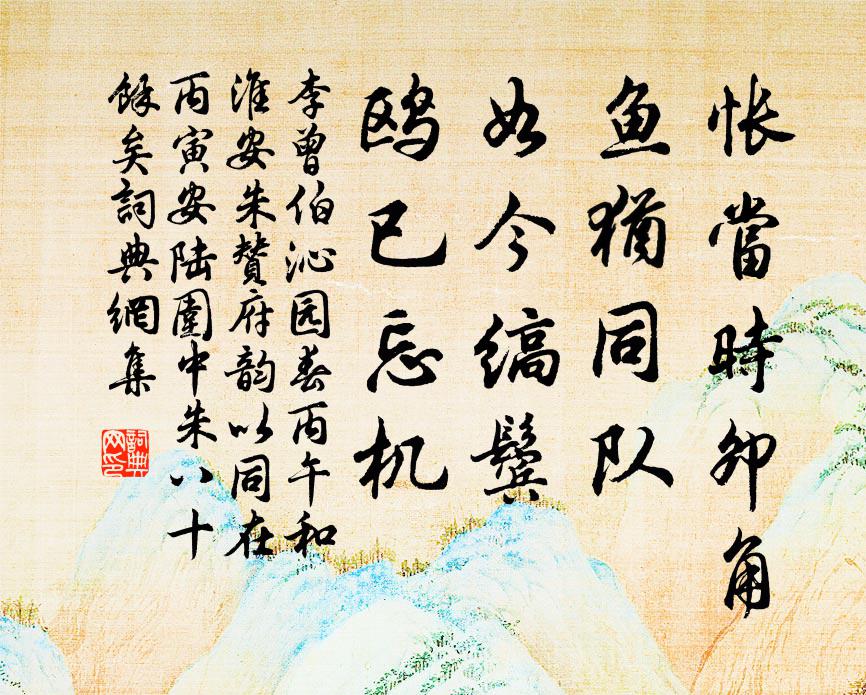 怅當時丱角
鱼猶同队
如今缟鬓
鸥已忘机
李曾伯沁园春丙午和
淮安朱赞府韵以同在
丙寅安陆圍中朱八十
馀矣詞典網集
詞典
网印